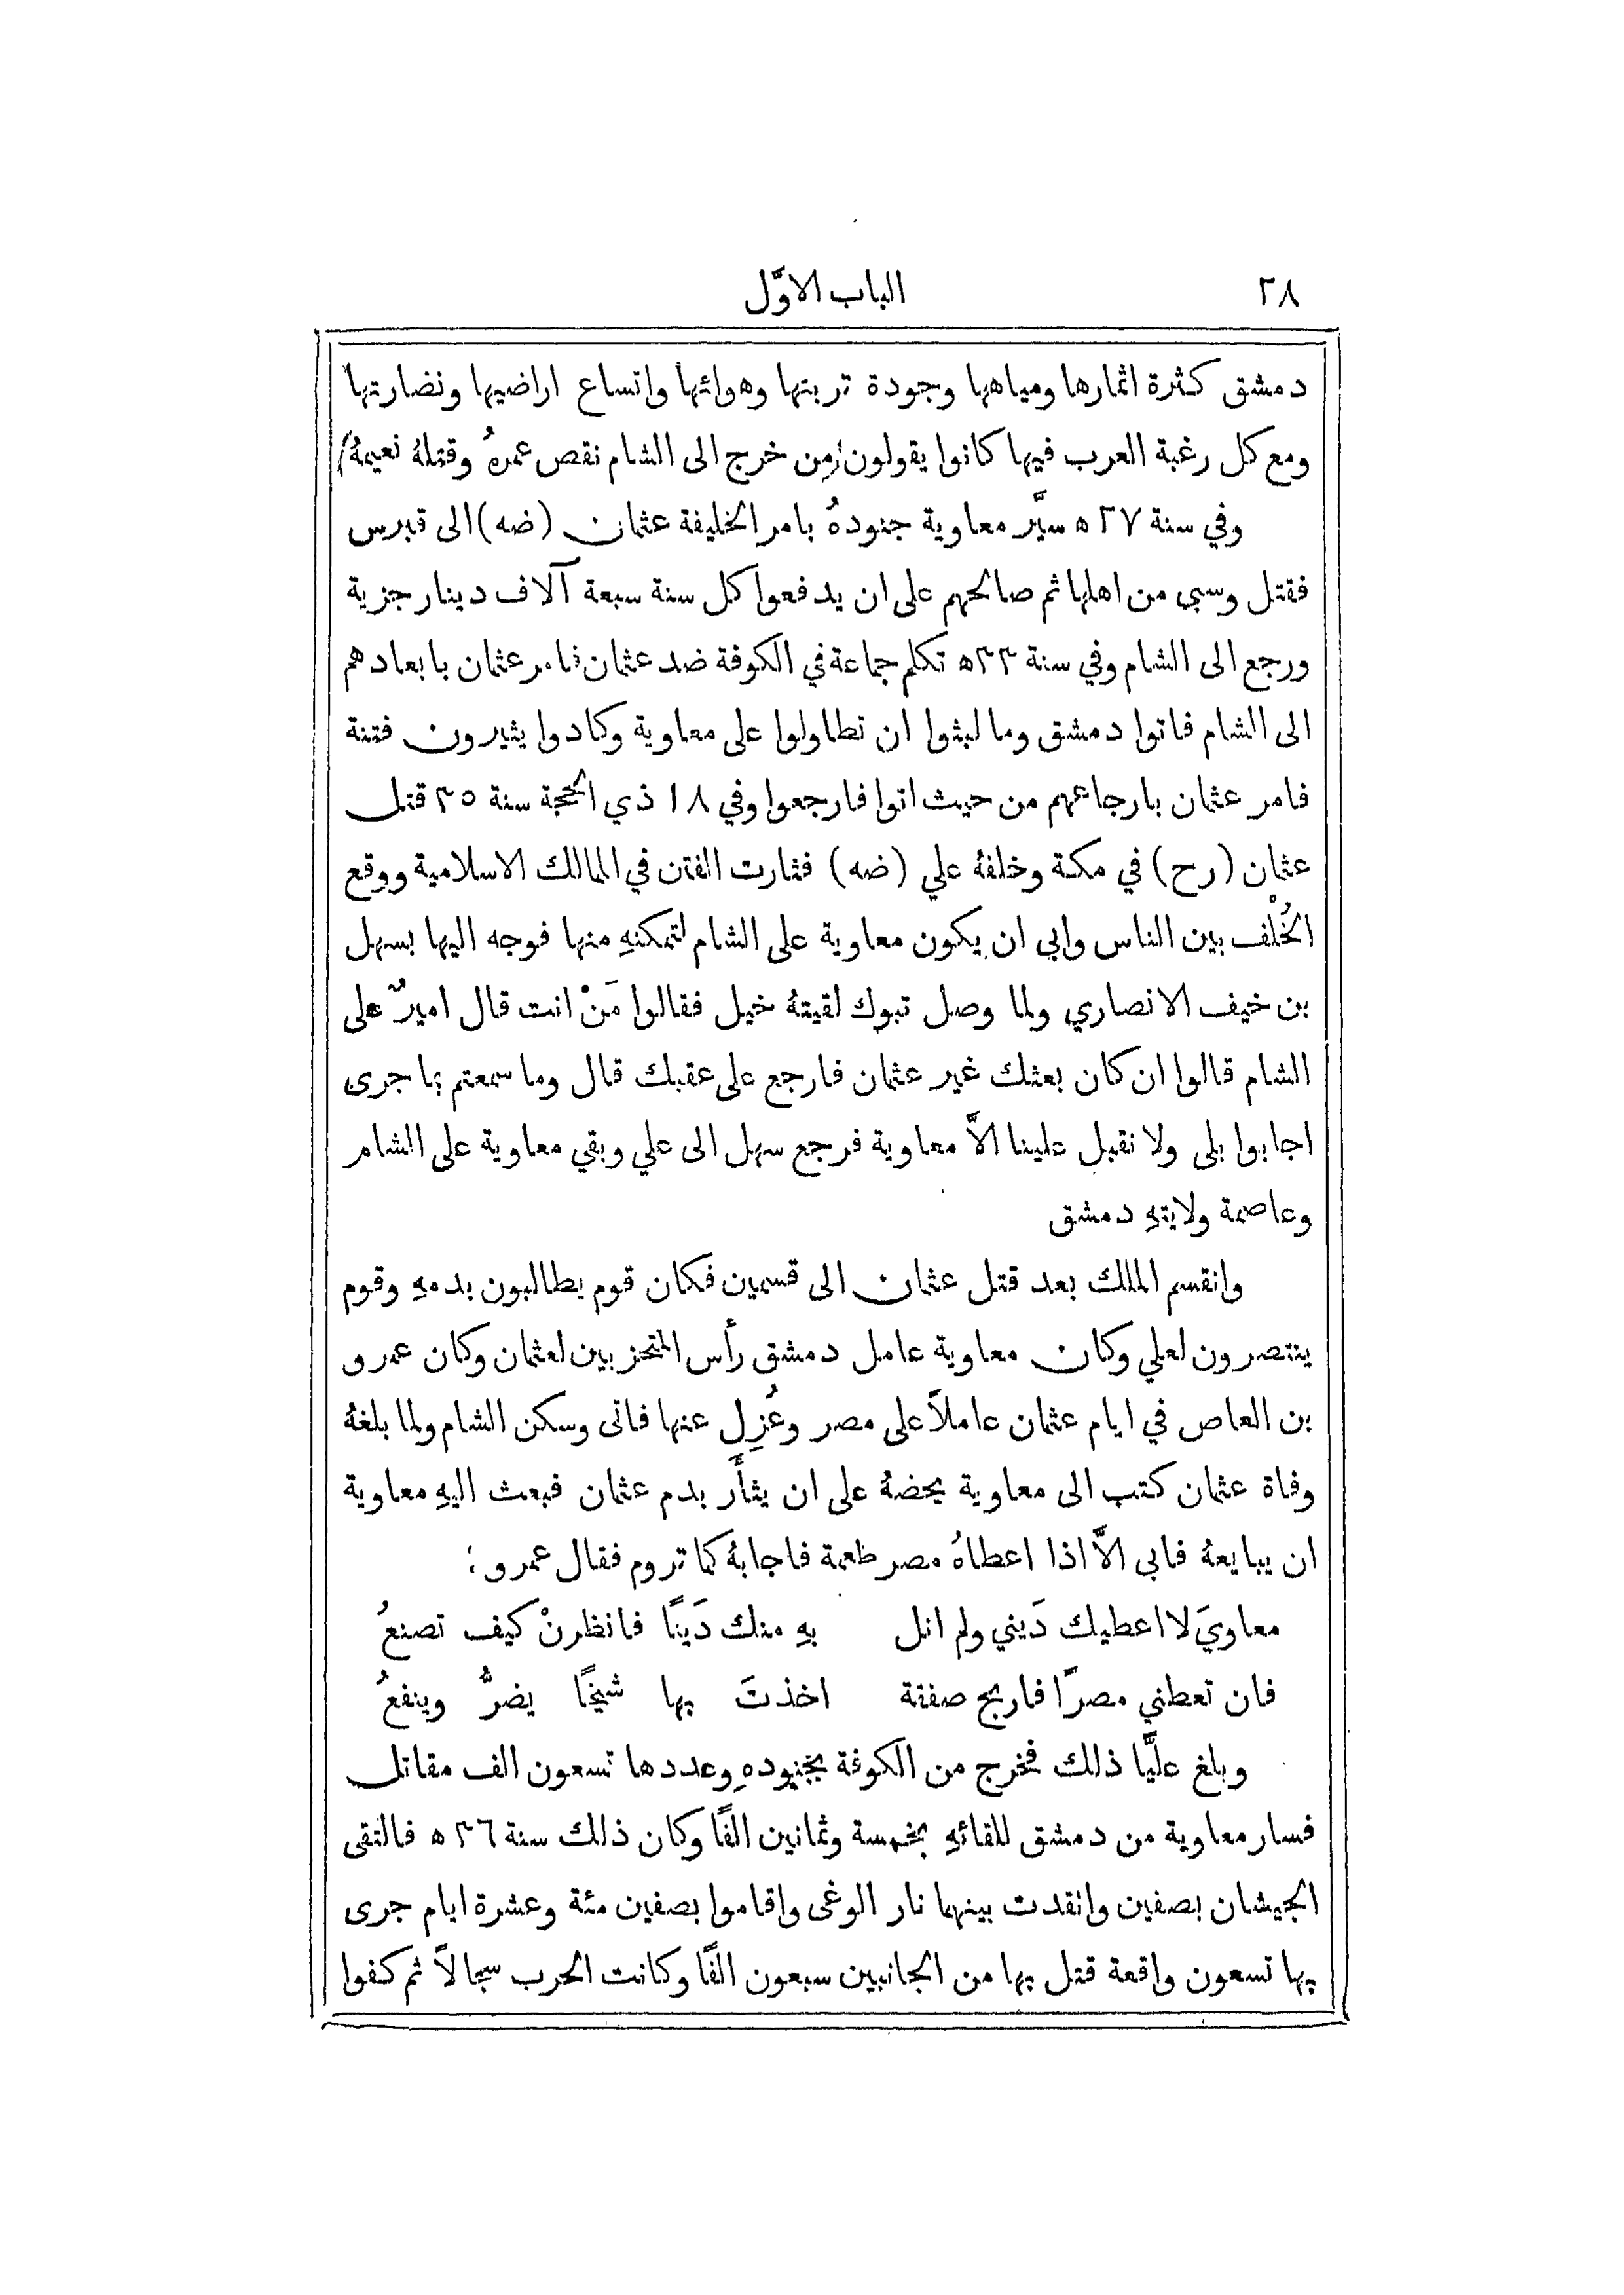 ٢٨
الباب الاوَّل
دمشق كثرة اثمارها ومياهها وجودة تربتها وهوائها واتساع اراضيها ونضارتها
ومع كل رغبة العرب فيها كانوا يقولون (مِن خرج الى الشام نقص عمرهُ وقتلهُ نعيمهُ)
وفي سنة ٢٧ ه سيَّر معاوية جنودهُ بامر الخليفة عثمان (ضه) الى قبرس
فقتل وسبى من اهلها ثم صالحهم على ان يدفعوا كل سنة سبعة آلاف دينار جزية
ورجع الى الشام وفي سنة ٣٣ ه تكلم جماعة في الكوفة ضد عثمان فامر عثمان بابعادهم
الى الشام فاتوا دمشق وما لبثوا ان تطاولوا على معاوية وكادوا يثيرون فتنة
فامر عثمان بارجاعهم من حيث اتوا فارجعوا وفي ١٨ ذي الحجة سنة ٣٥ قتل
عثمان (رح) في مكة وخلفهُ علي (ضه) فثارت الفتن في الممالك الاسلامية ووقع
الخُلْف بين الناس وابى ان يكون معاوية على الشام لتمكنهِ منها فوجه اليها بسهل
بن خيف الانصاري ولما وصل تبوك لقيتهُ خيل فقالوا مَنْ انت قال اميرٌ على
الشام قالوا ان كان بعثك غير عثمان فارجع على عقبك قال وما سمعتم بما جرى
اجابوا بلى ولا نقبل علينا الاَّ معاوية فرجع سهل الى علي وبقي معاوية على الشام
وعاصمة ولايتهِ دمشق
وانقسم الملك بعد قتل عثمان الى قسمين فكان قوم يطالبون بدمهِ وقوم
ينتصرون لعلي وكان معاوية عامل دمشق رأس المتحزبين لعثمان وكان عمرو
بن العاص في ايام عثمان عاملاً على مصر وعُزِل عنها فاتى وسكن الشام ولما بلغهُ
وفاة عثمان كتب الى معاوية يحضهُ على ان يثأَر بدم عثمان فبعث اليهِ معاوية
ان يبايعهُ فابى الاَّ اذا اعطاهُ مصر طعمة فاجابهُ كما تروم فقال عمرو :
معاويَ لا اعطيك دَيني ولم انل بهِ منك دَينًا فانظرنْ كيف تصنعُ
فان تعطني مصرًا فاربح صفقة اخذتَ بها شيخًا يضرُّ وينفعُ
وبلغ عليًّا ذلك فخرج من الكوفة بجنودهِ وعددها تسعون الف مقاتل
فسار معاوية من دمشق للقائهِ بخمسة وثمانين الفًا وكان ذلك سنة ٣٦ ه فالتقى
الجيشان بصفين واتقدت بينهما نار الوغى واقاموا بصفين مئة وعشرة ايام جرى
بها تسعون واقعة قتل بها من الجانبين سبعون الفًا وكانت الحرب سجالاً ثم كفوا